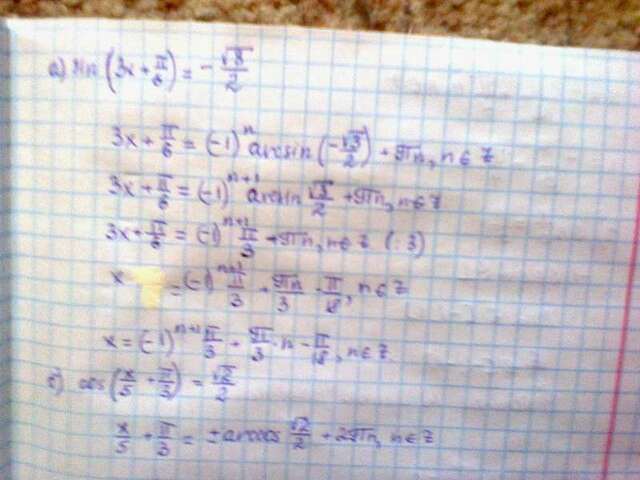 а) sin(3x + π/6) = -√3/2
3x + π/6 = (-1)^n arcsin(-√3/2) + πn, n ∈ Z
3x + π/6 = (-1)^{n+1} arcsin √3/2 + πn, n ∈ Z
3x + π/6 = (-1)^{n+1} π/3 + πn, n ∈ Z (:3)
x = (-1)^{n+1} π/3 + πn/3 - π/18, n ∈ Z
x = (-1)^{n+1} π/3 + π/3 · n - π/18, n ∈ Z
б) cos(x/5 + π/3) = √2/2
x/5 + π/3 = ± arccos √2/2 + 2πn, n ∈ Z